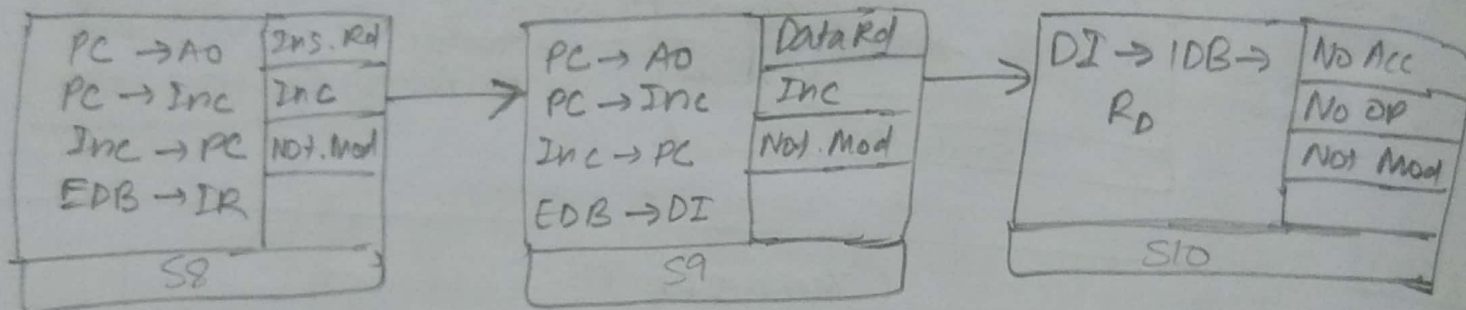 PC → AO
PC → Inc
Inc → PC
EDB → IR
Ins. Rd
Inc
Not. Mod
S8
PC → AO
PC → Inc
Inc → PC
EDB → DI
Data Rd
Inc
Not. Mod
S9
DI → IDB →
RD
No Acc
No OP
Not Mod
S10